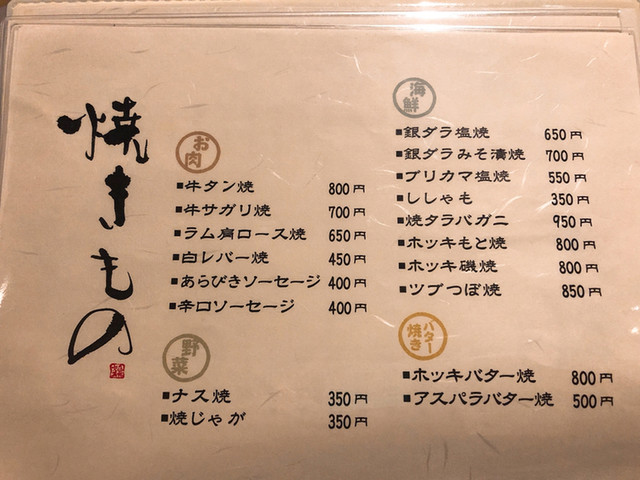 焼きもの
お肉
■牛タン焼 800円
■牛サガリ焼 700円
■ラム肩ロース焼 650円
■白レバー焼 450円
■あらびきソーセージ 400円
■辛口ソーセージ 400円
野菜
■ナス焼 350円
■焼じゃが 350円
海鮮
■銀ダラ塩焼 650円
■銀ダラみそ漬焼 700円
■ブリカマ塩焼 550円
■ししゃも 350円
■焼タラバガニ 950円
■ホッキもと焼 800円
■ホッキ磯焼 800円
■ツブつぼ焼 850円
バター焼き
■ホッキバター焼 800円
■アスパラバター焼 500円